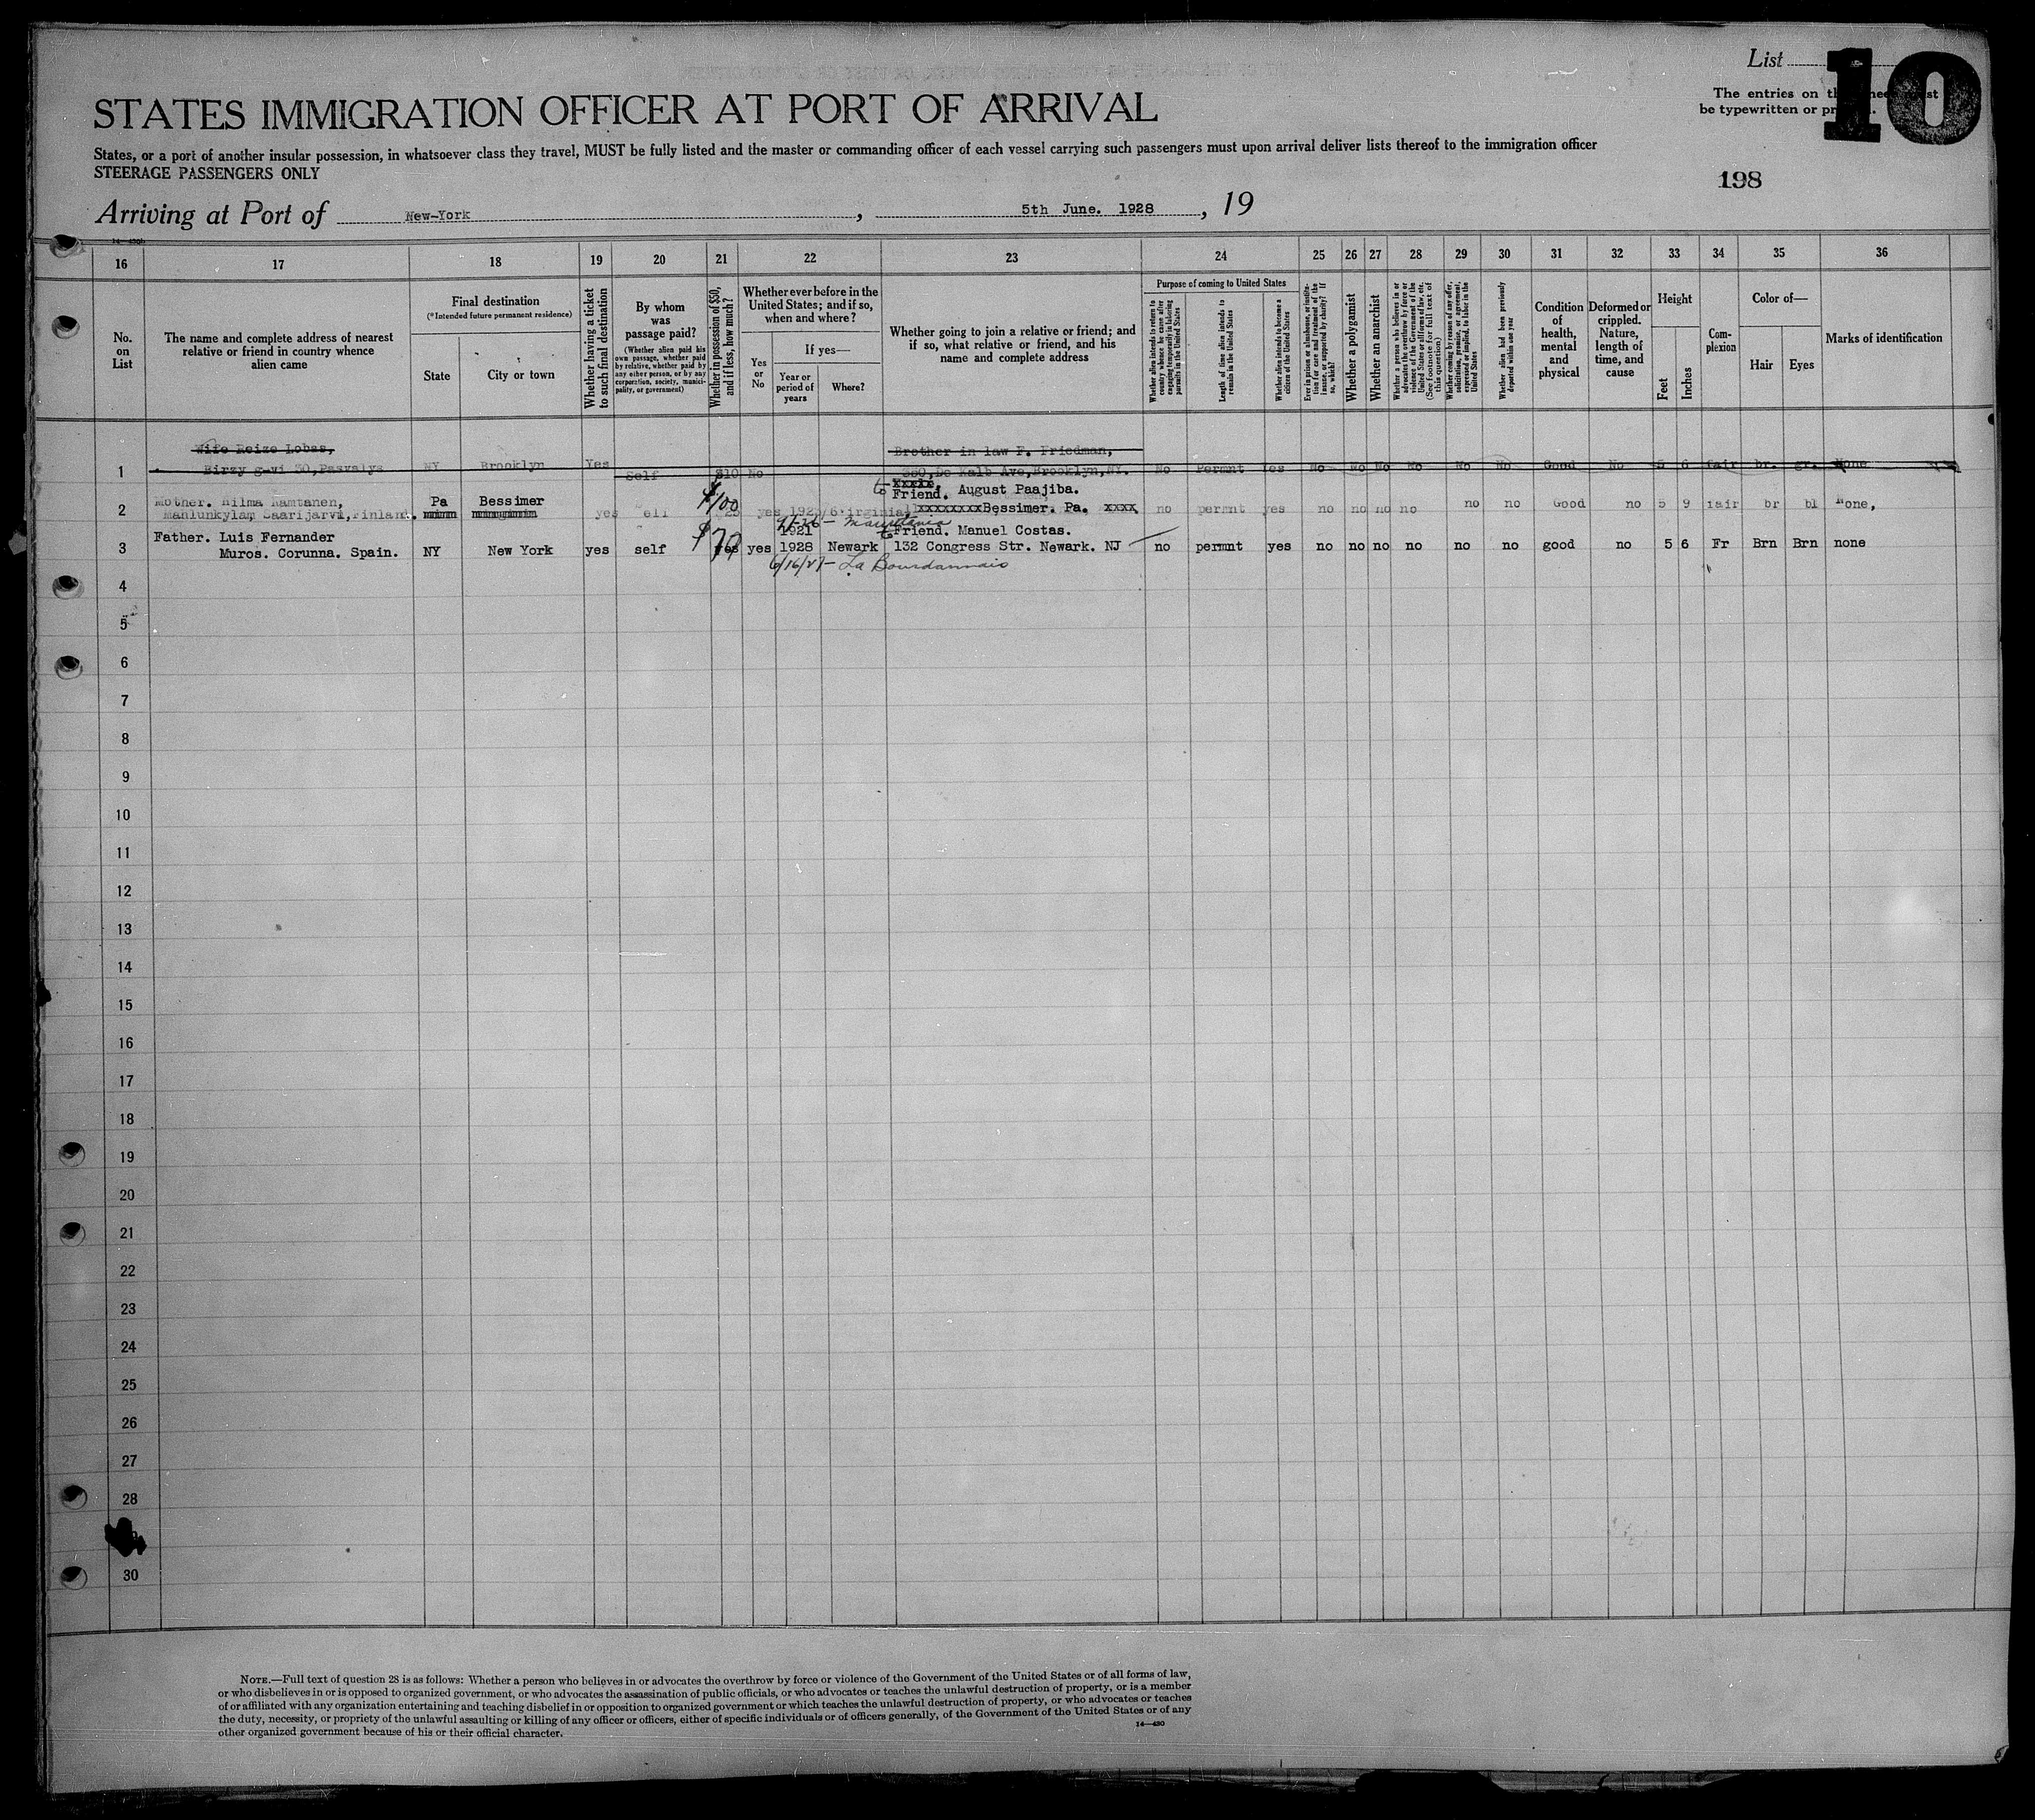 List 10
The entries on
be typewritten or
STATES IMMIGRATION OFFICER AT PORT OF ARRIVAL
States, or a port of another insular possession, in whatsoever class they travel, MUST be fully listed and the master or commanding officer of each vessel carrying such passengers must upon arrival deliver lists thereof to the immigration officer
STEERAGE PASSENGERS ONLY
198
Arriving at Port of New-York, 5th June. 1928, 19
14-430b
16 17 18 19 20 21 22 23 24 25 26 27 28 29 30 31 32 33 34 35 36
No. on List
The name and complete address of nearest relative or friend in country whence alien came
Final destination
(*Intended future permanent residence)
State
City or town
Whether having a ticket to such final destination
By whom was passage paid?
(Whether alien paid his own passage, whether paid by relative, whether paid by any other person, or by any corporation, society, municipality, or government)
Whether in possession of $50, and if less, how much?
Whether ever before in the United States; and if so, when and where?
Yes or No
If yes—
Year or period of years
Where?
Whether going to join a relative or friend; and if so, what relative or friend, and his name and complete address
Purpose of coming to United States
Whether alien intends to return to country whence he came after engaging temporarily in laboring pursuits in the United States
Length of time alien intends to remain in the United States
Whether alien intends to become a citizen of the United States
Ever in prison or almshouse, or institution for care and treatment of the insane, or supported by charity? If so, which?
Whether a polygamist
Whether an anarchist
Whether a person who believes in or advocates the overthrow by force or violence of the Government of the United States or all forms of law, etc. (See footnote for full text of this question)
Whether coming by reason of any offer, solicitation, promise, or agreement, expressed or implied, to labor in the United States
Whether alien had been previously deported within one year
Condition of health, mental and physical
Deformed or crippled. Nature, length of time, and cause
Height
Feet
Inches
Complexion
Color of—
Hair
Eyes
Marks of identification
Wife Reize Lobas, Brother in law F. Friedman,
1 Birzy g-vi 30, Pasvalys NY Brooklyn Yes Self $10 No 380, De Kalb Ave, Brooklyn, NY. No Permnt Yes No No No No No No Good No 5 6 fair br. gr. None
Mother. Hilma Kamtanen, Pa Bessimer $100 to Friend. August Paajiba.
2 Mahlunkyla, Saarijarvi, Finland. yes elf 25 yes xxxxxxxxBessimer. Pa. xxxx no permnt yes no no no no no no Good no 5 9 fair br bl None,
1921 Mauretania
Father. Luis Fernander $70 to Friend. Manuel Costas.
3 Muros. Corunna. Spain. NY New York yes self yes yes 1928 Newark 132 Congress Str. Newark. NJ no permnt yes no no no no no no good no 5 6 Fr Brn Brn none
6/16/21 - La Bourdonnais
4
5
6
7
8
9
10
11
12
13
14
15
16
17
18
19
20
21
22
23
24
25
26
27
28
30
NOTE.—Full text of question 28 is as follows: Whether a person who believes in or advocates the overthrow by force or violence of the Government of the United States or of all forms of law,
or who disbelieves in or is opposed to organized government, or who advocates the assassination of public officials, or who advocates or teaches the unlawful destruction of property, or is a member
of or affiliated with any organization entertaining and teaching disbelief in or opposition to organized government or which teaches the unlawful destruction of property, or who advocates or teaches
the duty, necessity, or propriety of the unlawful assaulting or killing of any officer or officers, either of specific individuals or of officers generally, of the Government of the United States or of any
other organized government because of his or their official character.
14—430